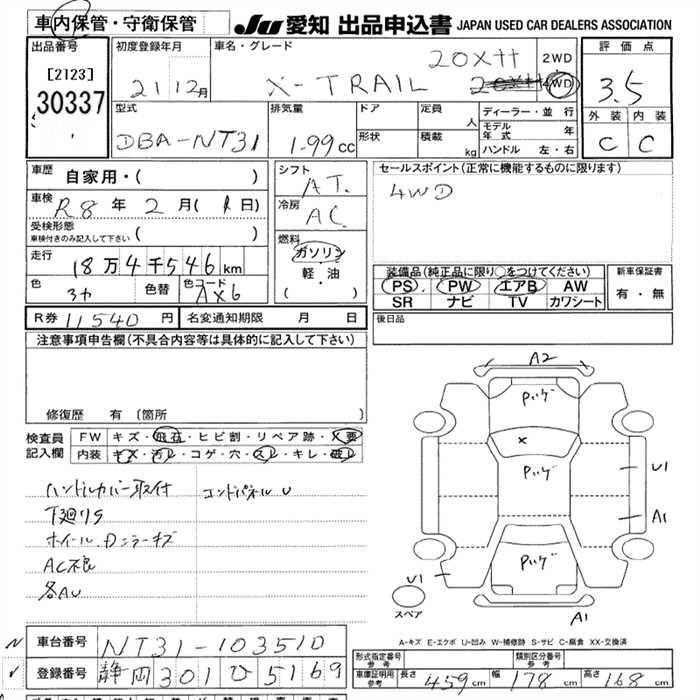 車内保管・守衛保管 JU 愛知 出品申込書 JAPAN USED CAR DEALERS ASSOCIATION
出品番号 [2123] 30337
初度登録年月 21 12月
車名・グレード X-TRAIL 20Xtt 2WD 4WD
評価点 3.5
外装 内装
C C
型式 DBA-NT31
排気量 1.99cc
ドア
形状
定員 人
積載 kg
ディーラー・並行
モデル年式 年
ハンドル 左・右
車歴 自家用・( )
車検 R8年2月(1日)
受検形態
車検付きのみ記入して下さい ( )
走行 18万4千546km
色 色替 色コード AX6
シフト AT.
冷房 AC
燃料 ガソリン
軽・油
( )
セールスポイント(正常に機能するものに限ります)
4WD
装備品(純正品に限り○をつけてください)
PS PW エアB AW
SR ナビ TV カワシート
新車保証書
有・無
後日品
R券 11540円 名変通知期限 月 日
注意事項申告欄(不具合内容等は具体的に記入して下さい)
修復歴 有 〔箇所 〕
検査員記入欄
FW キズ・飛石・ヒビ割・リペア跡・X要
内装 キズ・汚レ・コゲ・穴・スレ・キレ・破レ
ハンドルカバー取付 エンドパネルU
下廻りS
ホイール.Dミラーキズ
AC不良
各AU
A2
Pいゲ
X
Pいゲ
U1
A1
Pいゲ
U1
A1
スペア
A-キズ E-エクボ U-凹み W-補修跡 S-サビ C-腐食 XX-交換済
車台番号 NT31-103510
登録番号 静岡301ひ5169
形式指定番号 参考
類別区分番号 参考
車庫証明用 参考 長さ 459cm 幅 178cm 高さ 168cm